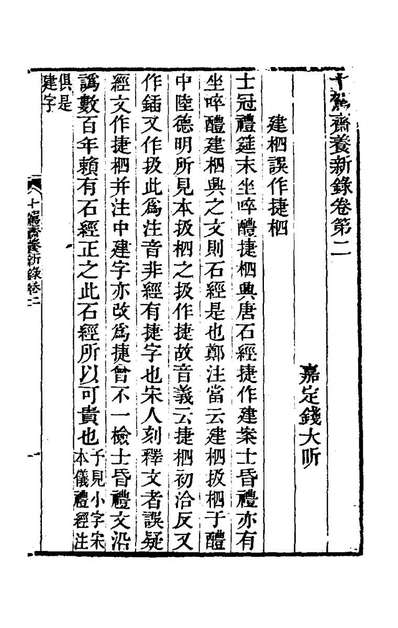 十駕齋養新錄卷第二
嘉定錢大昕
建柶誤作捷柶
士冠禮筵末坐啐醴捷柶興唐石經捷作建案士昏禮亦有
坐啐醴建柶興之文則石經是也鄭注當云建柶扱柶于醴
中陸德明所見本扱柶之扱作捷故音義云捷柶初洽反又
作鍤又作扱此為注音非經有捷字也宋人刻釋文者誤疑
經文作捷柶并注中建字亦改為捷曾不一檢士昏禮文沿
譌數百年賴有石經正之此石經所以可貴也予見小字宋本儀禮經注
俱是建字
十駕齋養新錄卷二